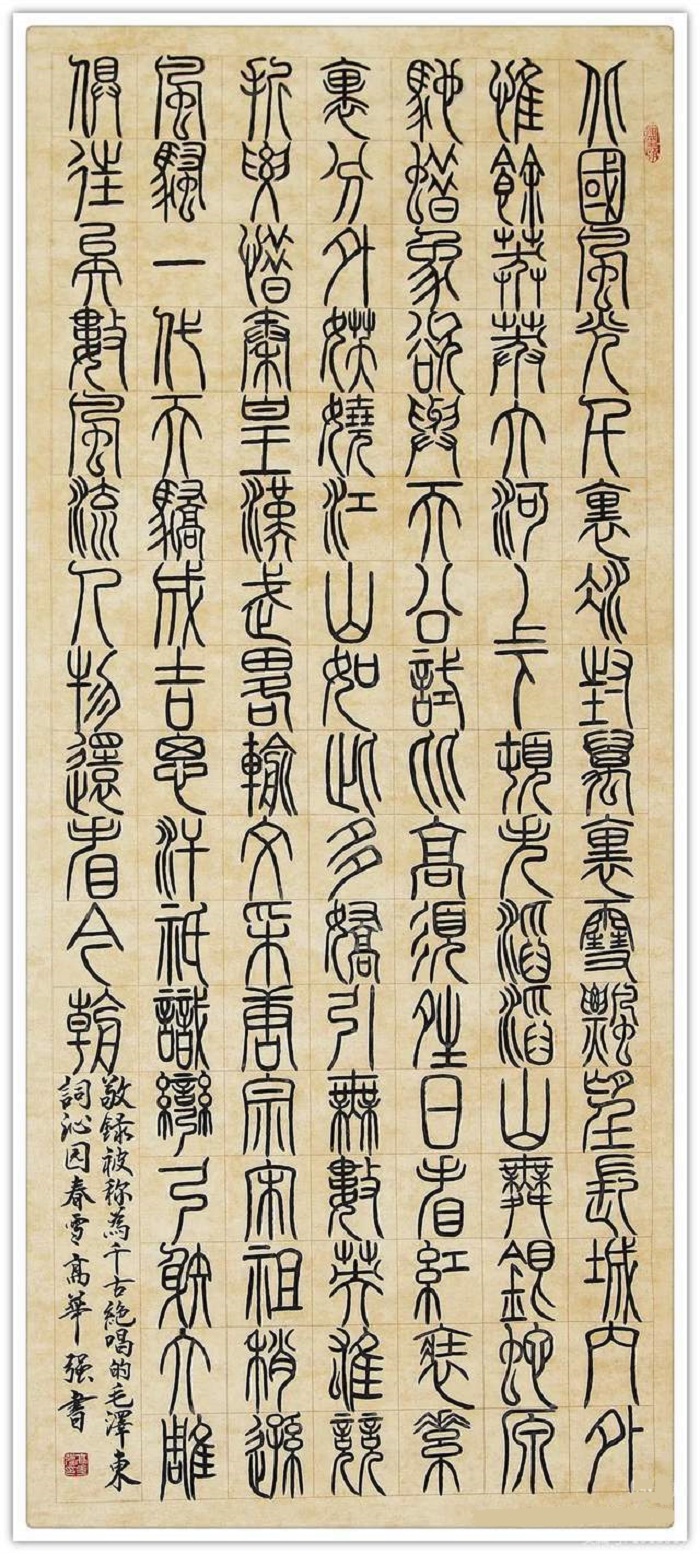 北國風光千裏冰封萬裏雪飄望長城內外
惟餘莽莽大河上下頓失滔滔山舞銀蛇原
馳蠟象欲與天公試比高須晴日看紅裝素
裹分外妖嬈江山如此多嬌引無數英雄競
折腰惜秦皇漢武略輸文采唐宗宋祖稍遜
風騷一代天驕成吉思汗祇識彎弓射大雕
俱往矣數風流人物還看今朝
敬録被称為千古絶唱的毛澤東
詞沁园春雪高華强書